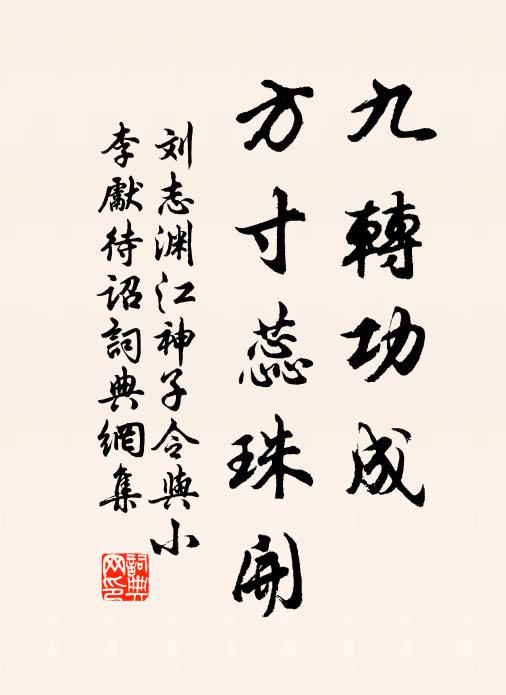 九轉功成
方寸蕊珠開
刘志渊江神子令與小
李獻待诏詞典網集
詞典
网印